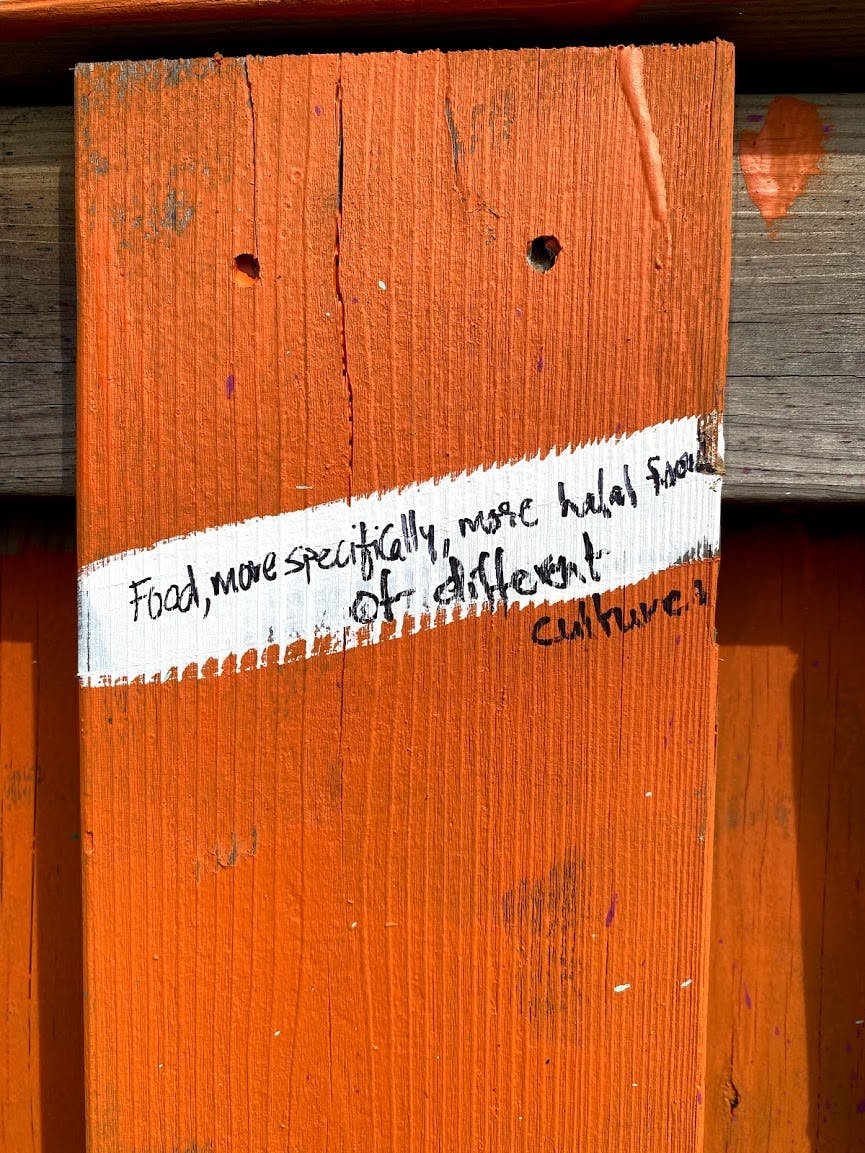 Food, more specifically, more halal food
of different
cultures